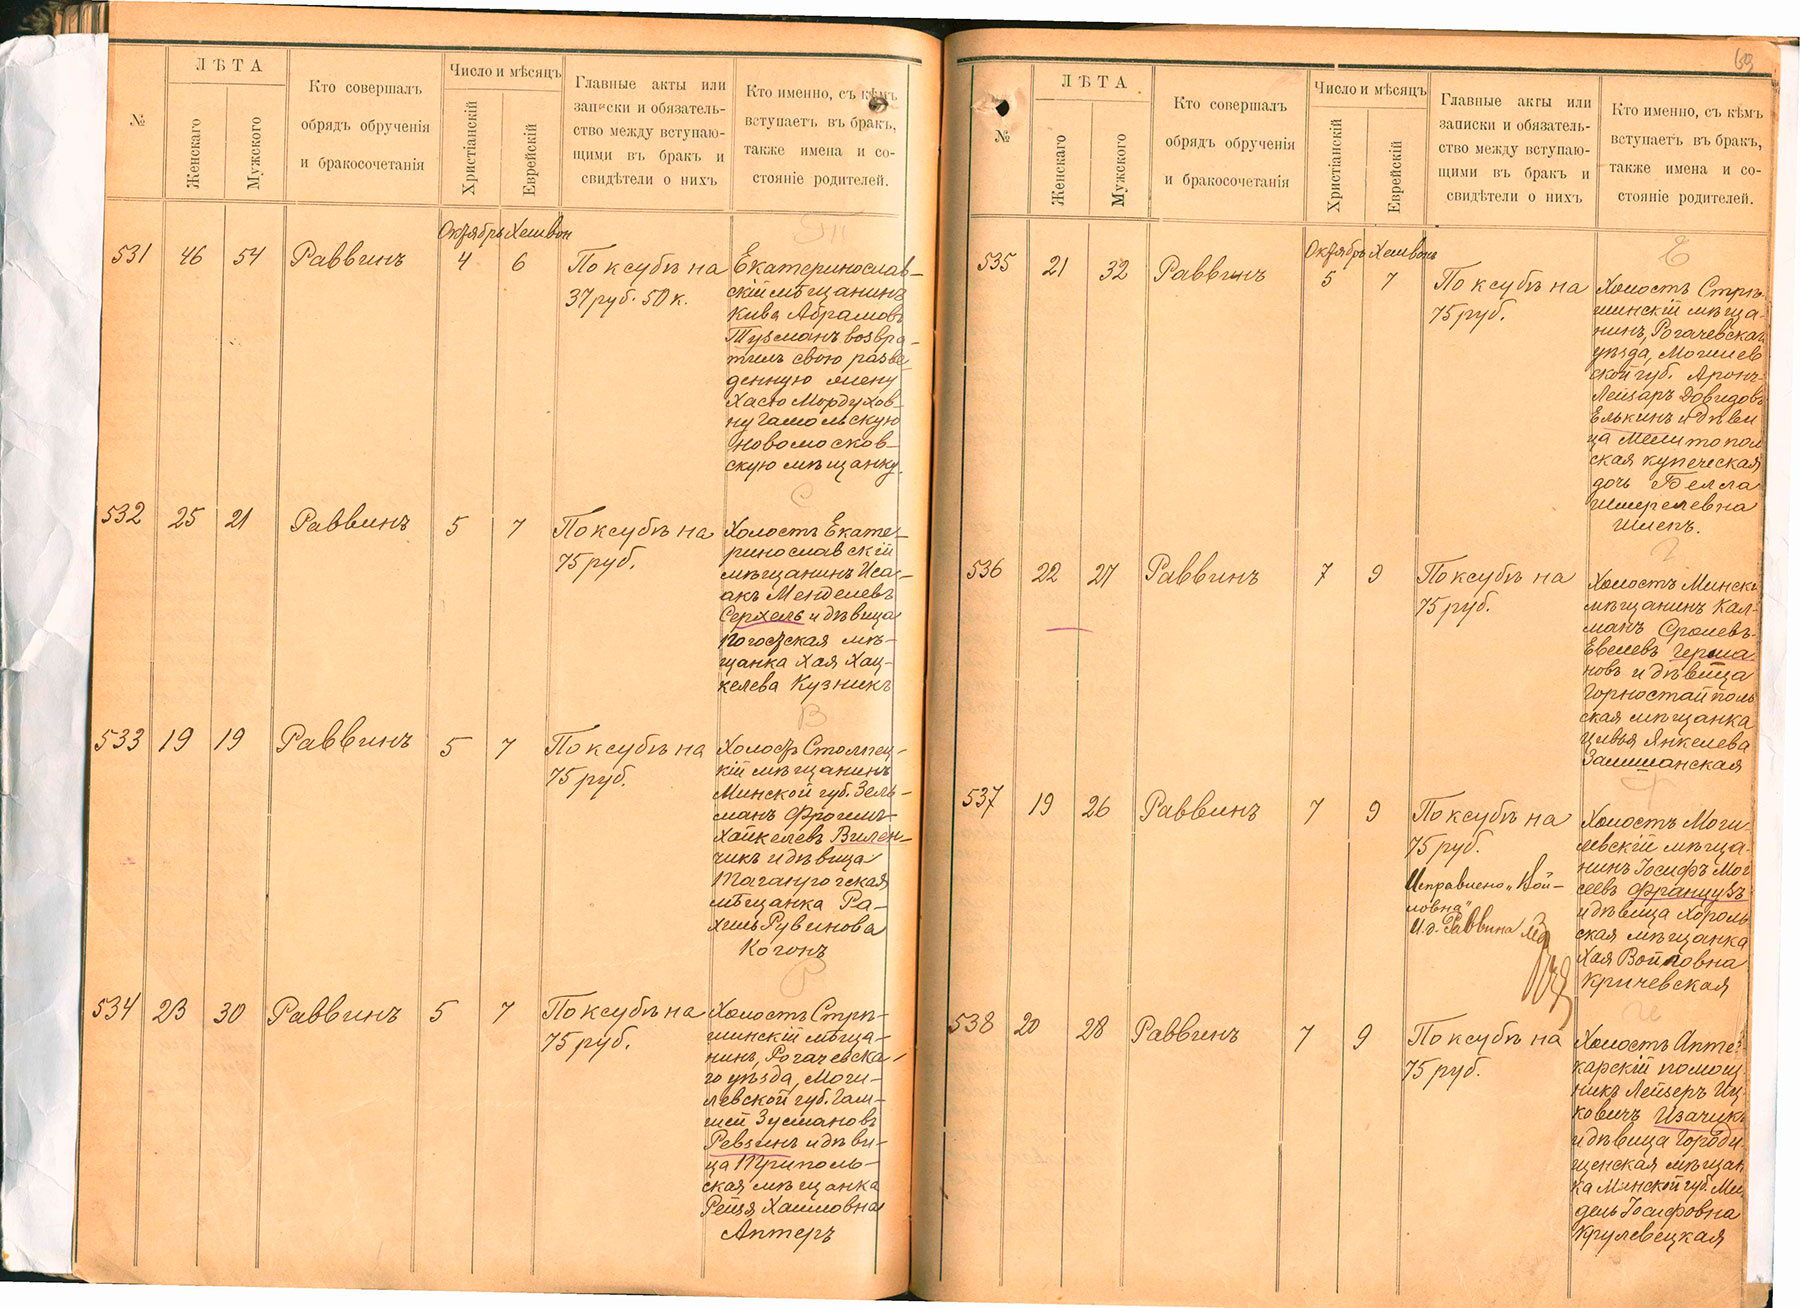 №
ЛѢТА
Женскаго
Мужского
Кто совершалъ
обрядъ обрученія
и бракосочетанія
Число и мѣсяцъ
Христіанскій
Еврейскій
Главные акты или
записки и обязатель-
ство между вступаю-
щими въ бракъ и
свидѣтели о нихъ
Кто именно, съ кѣмъ
вступаетъ въ бракъ,
также имена и со-
стояніе родителей.
Октябрь Хешвон
531 46 54 Раввинъ 4 6
По ксубѣ на
37 руб. 50 к.
Т
Екатеринослав-
скій мѣщанинъ
Кива Абрамовъ
Тузманъ возвра-
тилъ свою разве-
денную жену
Хасю Мордухов-
ну Гамольскую
новомосков-
скую мѣщанку.
532 25 21 Раввинъ 5 7
По ксубѣ на
75 руб.
С
Холостъ Екате-
ринославскій
мѣщанинъ Иса-
акъ Менделевъ
Серхель и дѣвица
Погостская мѣ-
щанка Хая Хац-
келева Кузникъ
533 19 19 Раввинъ 5 7
По ксубѣ на
75 руб.
В
Холостъ Столпец-
кій мѣщанинъ
Минской губ. Зель-
манъ Фроимъ-
Хайкелевъ Вилен-
чикъ и дѣвица
Таганрогская
мѣщанка Ра-
хиль Рувинова
Когонъ
534 23 30 Раввинъ 5 7
По ксубѣ на
75 руб.
Р
Холостъ Стрѣ-
шинскій мѣща-
нинъ, Рогачевска-
го уѣзда, Моги-
левской губ. Гам-
шей Зусмановъ
Ревзинъ и дѣви-
ца Триполь-
ская мѣщанка
Рейзя Хаимовна
Аптеръ
69
№
ЛѢТА
Женскаго
Мужского
Кто совершалъ
обрядъ обрученія
и бракосочетанія
Число и мѣсяцъ
Христіанскій
Еврейскій
Главные акты или
записки и обязатель-
ство между вступаю-
щими въ бракъ и
свидѣтели о нихъ
Кто именно, съ кѣмъ
вступаетъ въ бракъ,
также имена и со-
стояніе родителей.
Октябрь Хешвонъ
535 21 32 Раввинъ 5 7
По ксубѣ на
75 руб.
Е
Холостъ Стрѣ-
шинскій мѣща-
нинъ, Рогачевскаго
уѣзда, Могилев
ской губ. Аронъ-
Лейзаръ Довидовъ
Елькинъ и дѣви
ца Мелитополь
ская купеческая
дочь Белла
Шмерелевна
Шлепъ.
536 22 27 Раввинъ 7 9
По ксубѣ на
75 руб.
Г
Холостъ Минскій
мѣщанинъ Кал-
манъ Сролевъ-
Евелевъ Герма
новъ и дѣвица
Горностайполь
ская мѣщанка
Цивья Янкелева
Замшанская
537 19 26 Раввинъ 7 9
По ксубѣ на
75 руб.
Исправлено „Вой-
ловна"
И.д. Раввина
Ф
Холостъ Моги-
левскій мѣща-
нинъ Іосифъ Мои
сеевъ Французъ
и дѣвица Хороль
ская мѣщанка
Хая Войловна
Кричевская
538 20 28 Раввинъ 7 9
По ксубѣ на
75 руб.
И
Холостъ Апте-
карскій помощ
никъ Лейзеръ Иц-
ковичъ Изачикъ
и дѣвица Городи
щенская мѣщан
ка Минской губ. Ми
дель Іосифовна
Крулевецкая